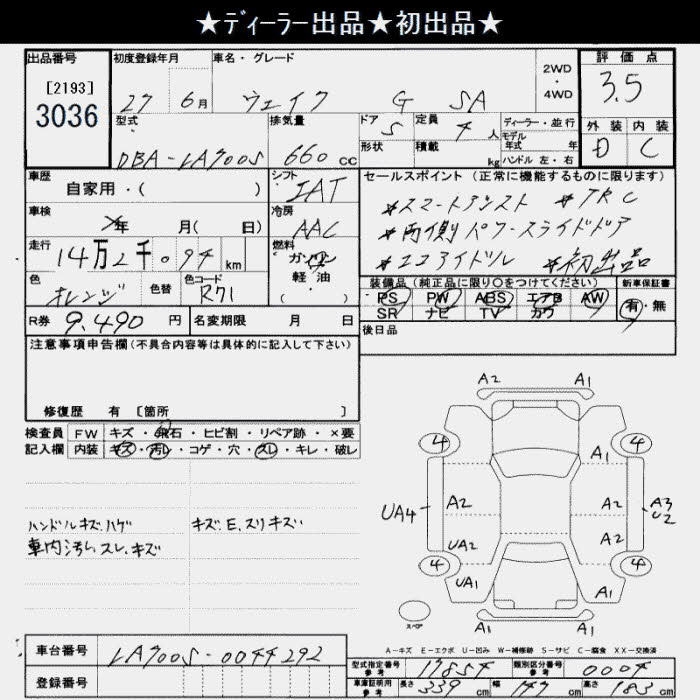 ★ディーラー出品★初出品★
出品番号 初度登録年月 車名・グレード 2WD・4WD 評価点
[2193]
3036
27 6月 ウェイク G SA 3.5
型式 排気量 ドア 定員 ディーラー・並行 外装 内装
DBA-LA700S 660cc 5 4人 モデル年式 年 D C
形状 積載 kg ハンドル 左・右
車歴 自家用・( ) シフト IAT セールスポイント (正常に機能するものに限ります)
車検 年 月( 日) 冷房 AAC
*スマートアシスト *TRC
*両側パワースライドドア
*エコアイドル *初出品
走行 14万2千094km 燃料 ガソリン 軽・油 ( )
色 オレンジ 色替 色コード R71
装備品 (純正品に限り○をつけてください) 新車保証書
PS PW ABS エアB AW 有・無
SR ナビ TV カワ
R券 9,490円 名変期限 月 日 後日品
注意事項申告欄 (不具合内容等は具体的に記入して下さい)
修復歴 有 [箇所 ]
検査員 FW キズ・飛石・ヒビ割・リペア跡・×要
記入欄 内装 キズ・汚レ・コゲ・穴・スレ・キレ・破レ
ハンドルキズ.ハゲ キズ.E.スリキズ
車内汚レ スレ.キズ
A2 A1
4 4
UA4 A2 A2 A3
U2
UA2 A2
4 4
UA1 A1
A1 A1
スペア
A-キズ E-エクボ U-凹み W-補修跡 S-サビ C-腐食 XX-交換済
車台番号 LA700S-0044292
登録番号
型式指定番号 参考 17854 類別区分番号 参考 0004
車庫証明用 参考 長さ 339cm 幅 147cm 高さ 183cm